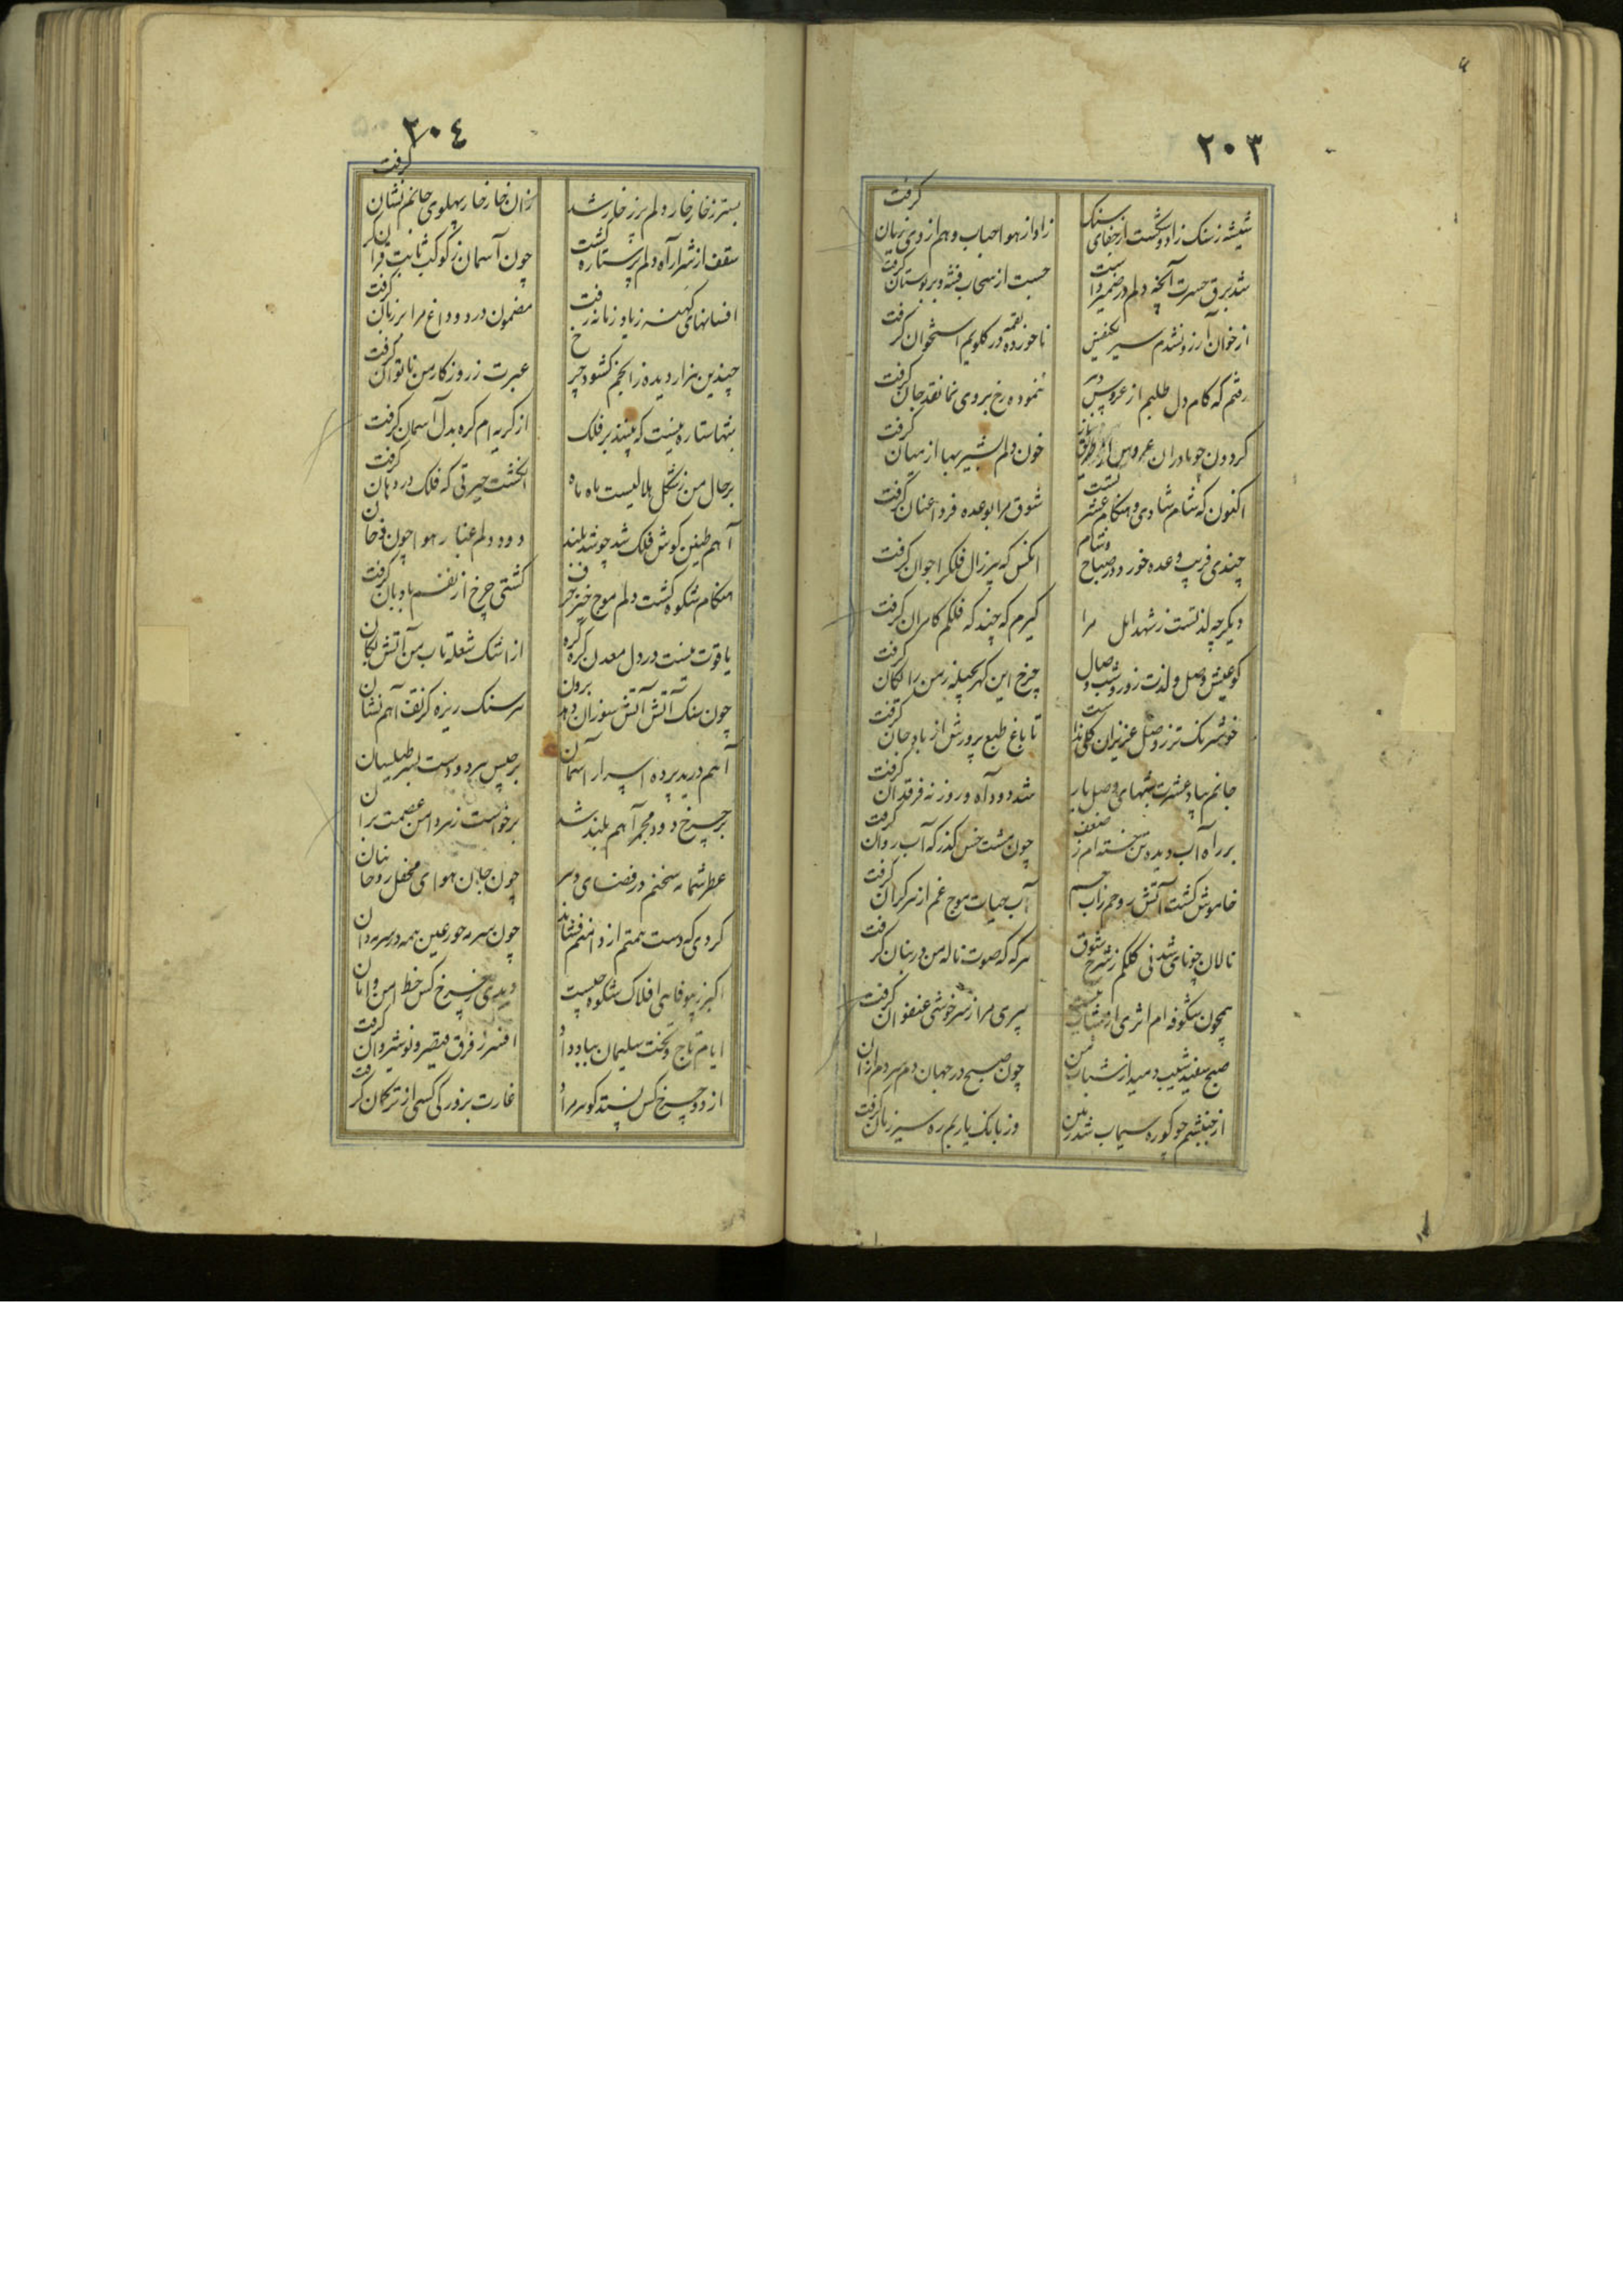 ٢٠٣
شیشه ز سنک زاد و شکست از جفای سنک
زاد از هوا حباب و هم از وی زیان گرفت
شد برق حسرت آنچه دلم در ضمیر داشت
جست از سحاب فتنه و بر بوستان گرفت
از خوان آرزو نشدم سیر یکنفس
ناخورده لقمه در کلویم استخوان گرفت
رفتم که کام دل طلبم از عروس دهر
ننموده رخ بروی نما نقد جان گرفت
کردون چو مادران عروس از طریق
خون دلم بشیر بها از میان گرفت
اکنون که شام شادی و هنکام عشرتست
شوق مرا بوعده فردا عنان گرفت
چندی فریب وعده خورد در صباح و شام
انکس که پیر زال فلک را جوان گرفت
دیکر چه لذتست ز شهد امل مرا
کیرم که چند که فلکم کامران گرفت
کو عیش وصل و لذت روز و شب وصال
چرخ این کهر بحیله ز من رایکان گرفت
خوشرنک تر ز وصل عزیزان کلی نداشت
تا باغ طبع پرورش از باد جان گرفت
جانم بیاد عشرت شبهای وصل یار
شد دود آه و روزنه فرقدان گرفت
بر راه آب دیده تن خسته ام ز ضعف
چون مشت خس کذرکه آب روان گرفت
خاموش کشت آتش روحم ز آب جسم
آب حیات موج غم از هر کران گرفت
نالان چو نای شد نی کلکم ز شرح شوق
هر که که صوت ناله من در بنان گرفت
همچون شکوفه ام اثری از شباب نیست
پیری مرا ز سرخوشی عنفوان گرفت
صبح سفید شیب دمید از شباب من
چون صبح در جهان دم سردم از آن
از جنبشم چو کوره سیماب شد زمین
وز بانک یاربم ره سیر زمان گرفت
٢٠٤
بستر ز خار خار دلم پر ز خار شد
زان خار خار پهلوی جانم نشان گرفت
سقف از شرار آه دلم پر ستاره کشت
چون آسمان ز کوکب ثابت قران گر
افسانهای کهنه ز یاد زمانه رفت
مضمون درد و داغ مرا بر زبان گرفت
چندین هزار دیده ز انجم کشود چرخ
عبرت ز روزکار من ناتوان گرفت
تنها ستاره نیست که بینند بر فلک
از کریه ام کره بدل آسمان گرفت
بر حال من ز شکل هلالیست ماه ماه
انکشت حیرتی که فلک در دهان گرفت
آهم طنین کوش فلک شد چو شد بلند
دود دلم عنان هوا چون دخان
هنکام شکوه کشت دلم موج خیز حرف
کشتی چرخ از نفسم بادبان گرفت
یاقوت نیست در دل معدن کره کره
از اشک شعله تاب من آتش بکان
چون سنک آتش آتش سوزان دهد برون
هر سنک ریزه کز تف آهم نشان
آهم درید پرده اسرار آسمان
برجیس برد و دست بسر طیلسان
بر چرخ دود مجمر آهم بلند شد
برخواست زهره دامن عصمت بر آن
عطر شمامه سخنم در فضای دهر
چون جان هوای محفل روحانیان
کردی که دست همتم از دامنم فشاند
چون سرمه حور عین همه در سرمه دان
اکبر ز بیوفایی افلاک شکوه چیست
دیدی ز چرخ کس خط امن و امان
ایام تاج و تخت سلیمان بباد داد
افسر ز فرق قیصر و نوشیروان گرفت
از دو چرخ کس نستد کوهر مراد
غارت بزور کی کسی از ترکمان گرفت